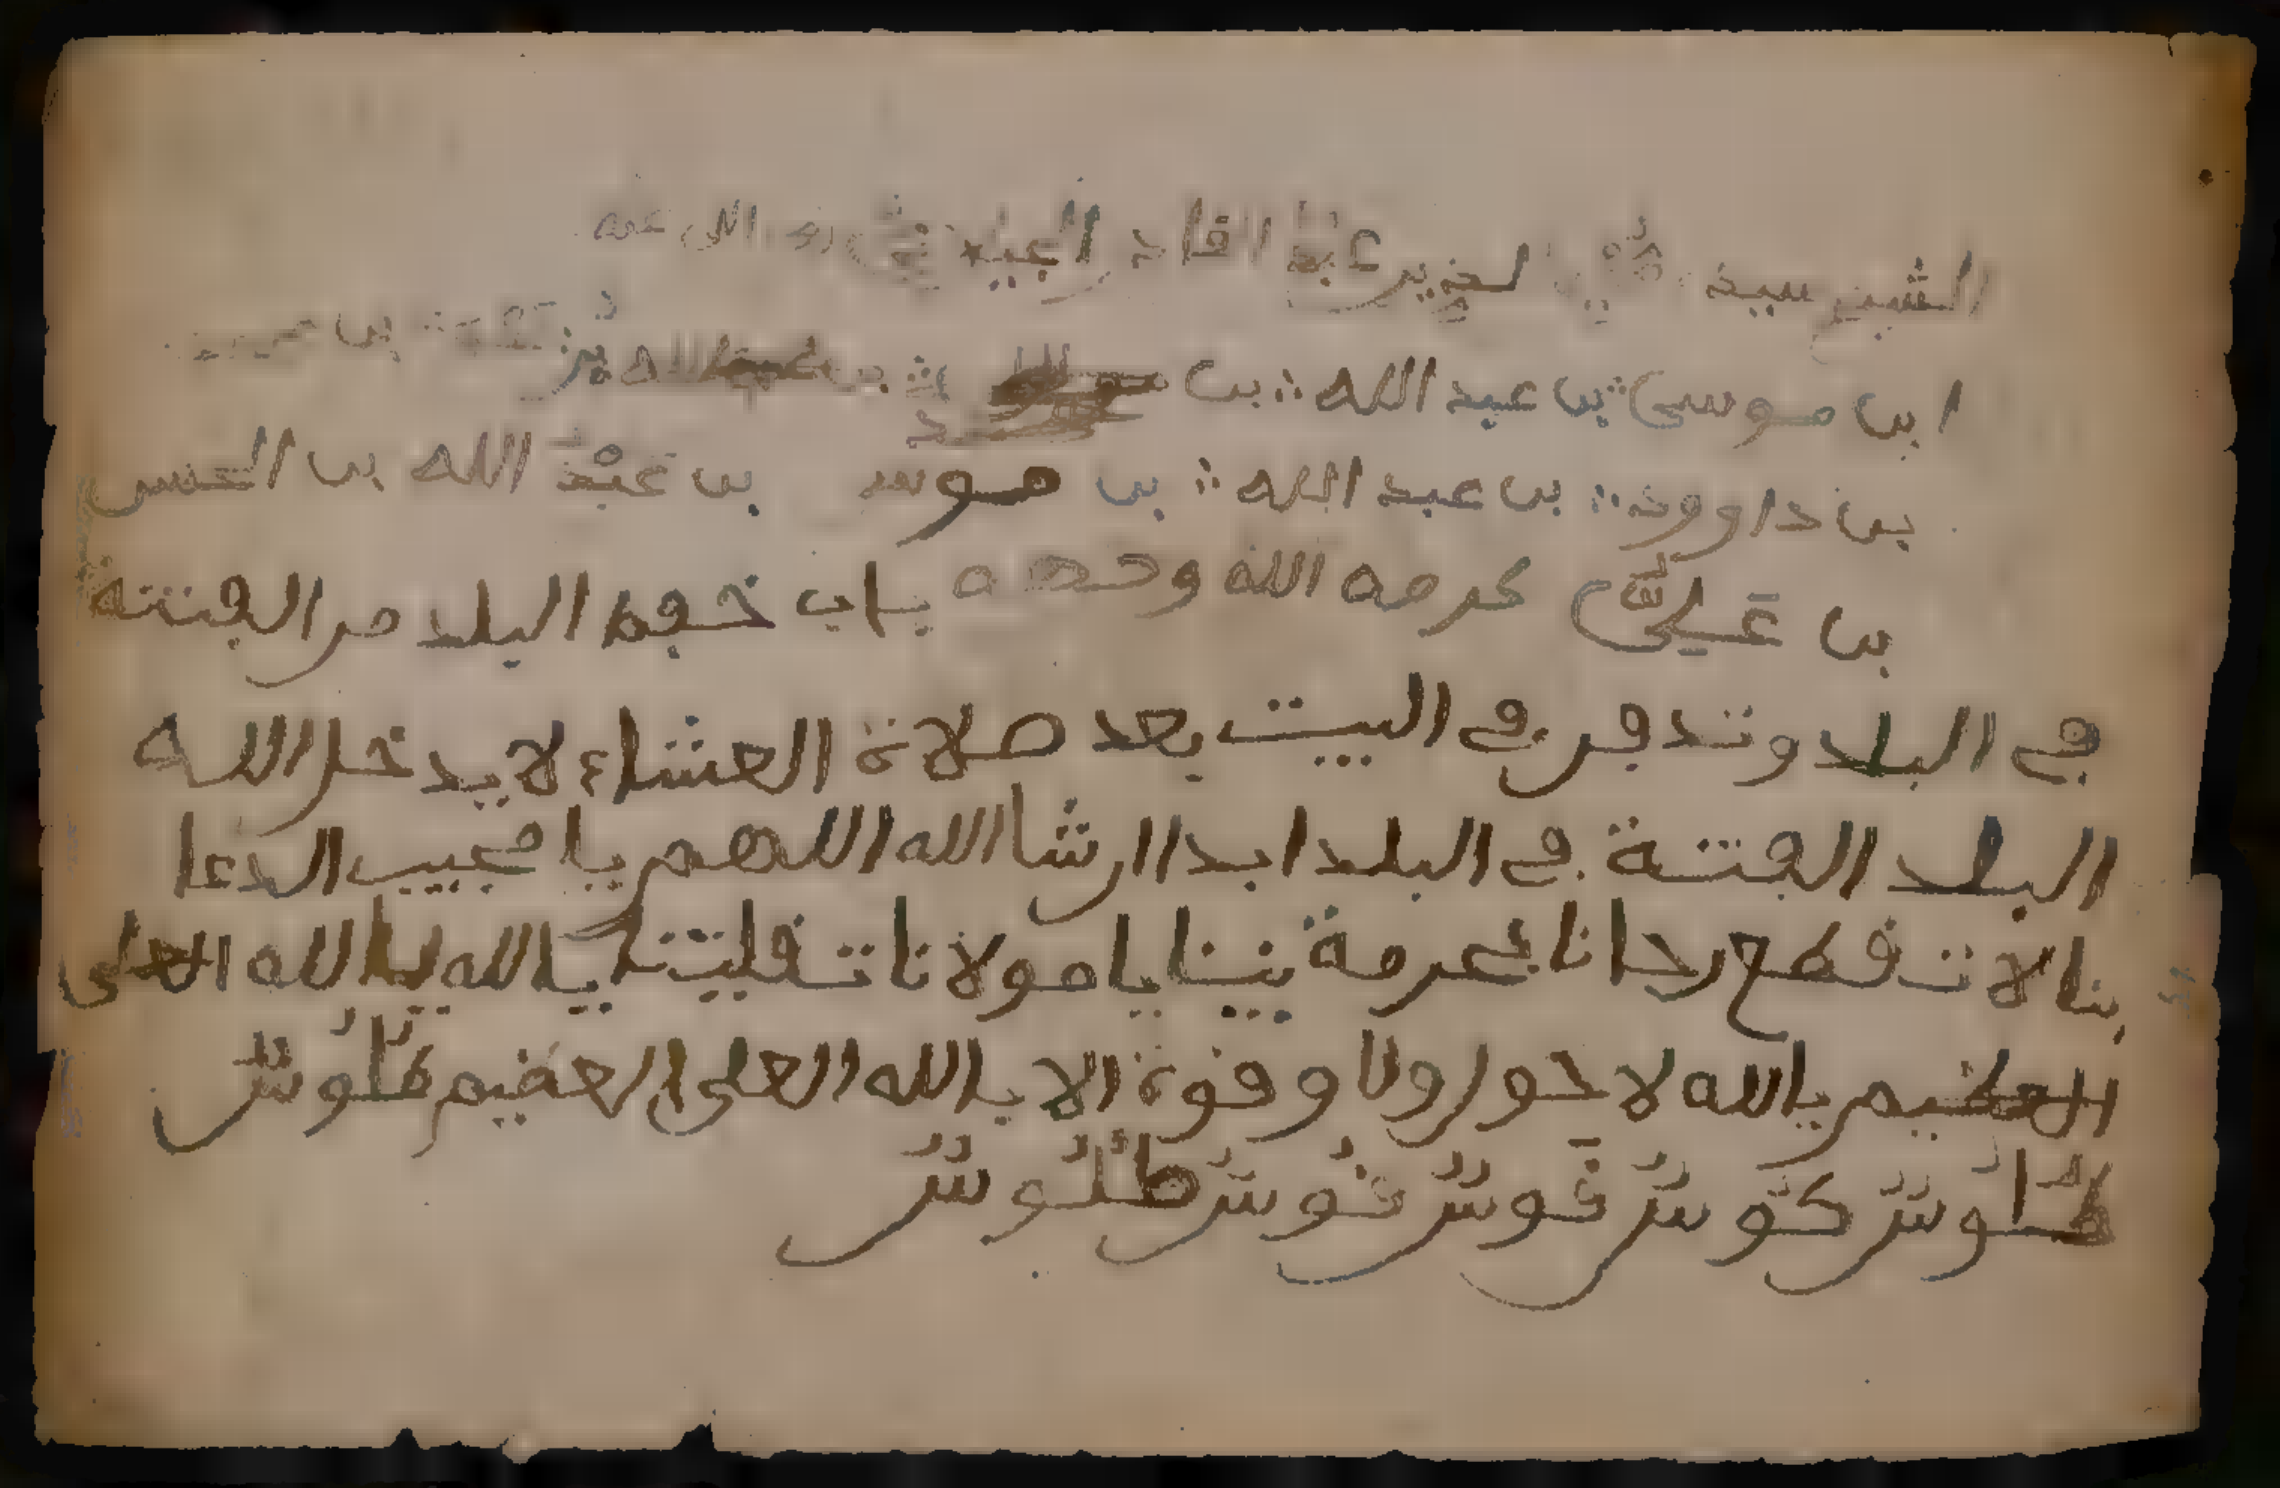 الشيخ سيد عبد القادر الجيلاني رضي الله عنه
ابن موسى بن عبد الله بن بن عبد الله بن
بن داوود بن عبد الله بن موسى بن عبد الله بن الحسن
بن علي كرمه الله وجهه باب حفظ البلد من الفتنة
في البلد وتدفن في البيت بعد صلاة العشاء لا يدخل الله
البلد الفتنة في البلد ابدا ان شا الله اللهم يا مجيب الدعا
بنا لا تقطع رجانا بحرمة نبينا يا مولانا تقلبتنا يا الله يا الله العلى
العظيم يا الله لا حول ولا وقوة الا بالله العلى العظيم طَلُوشٌ
طَلُوشٌ كَوشٌ فَوشٌ نُوشٌ طَلُوشٌ